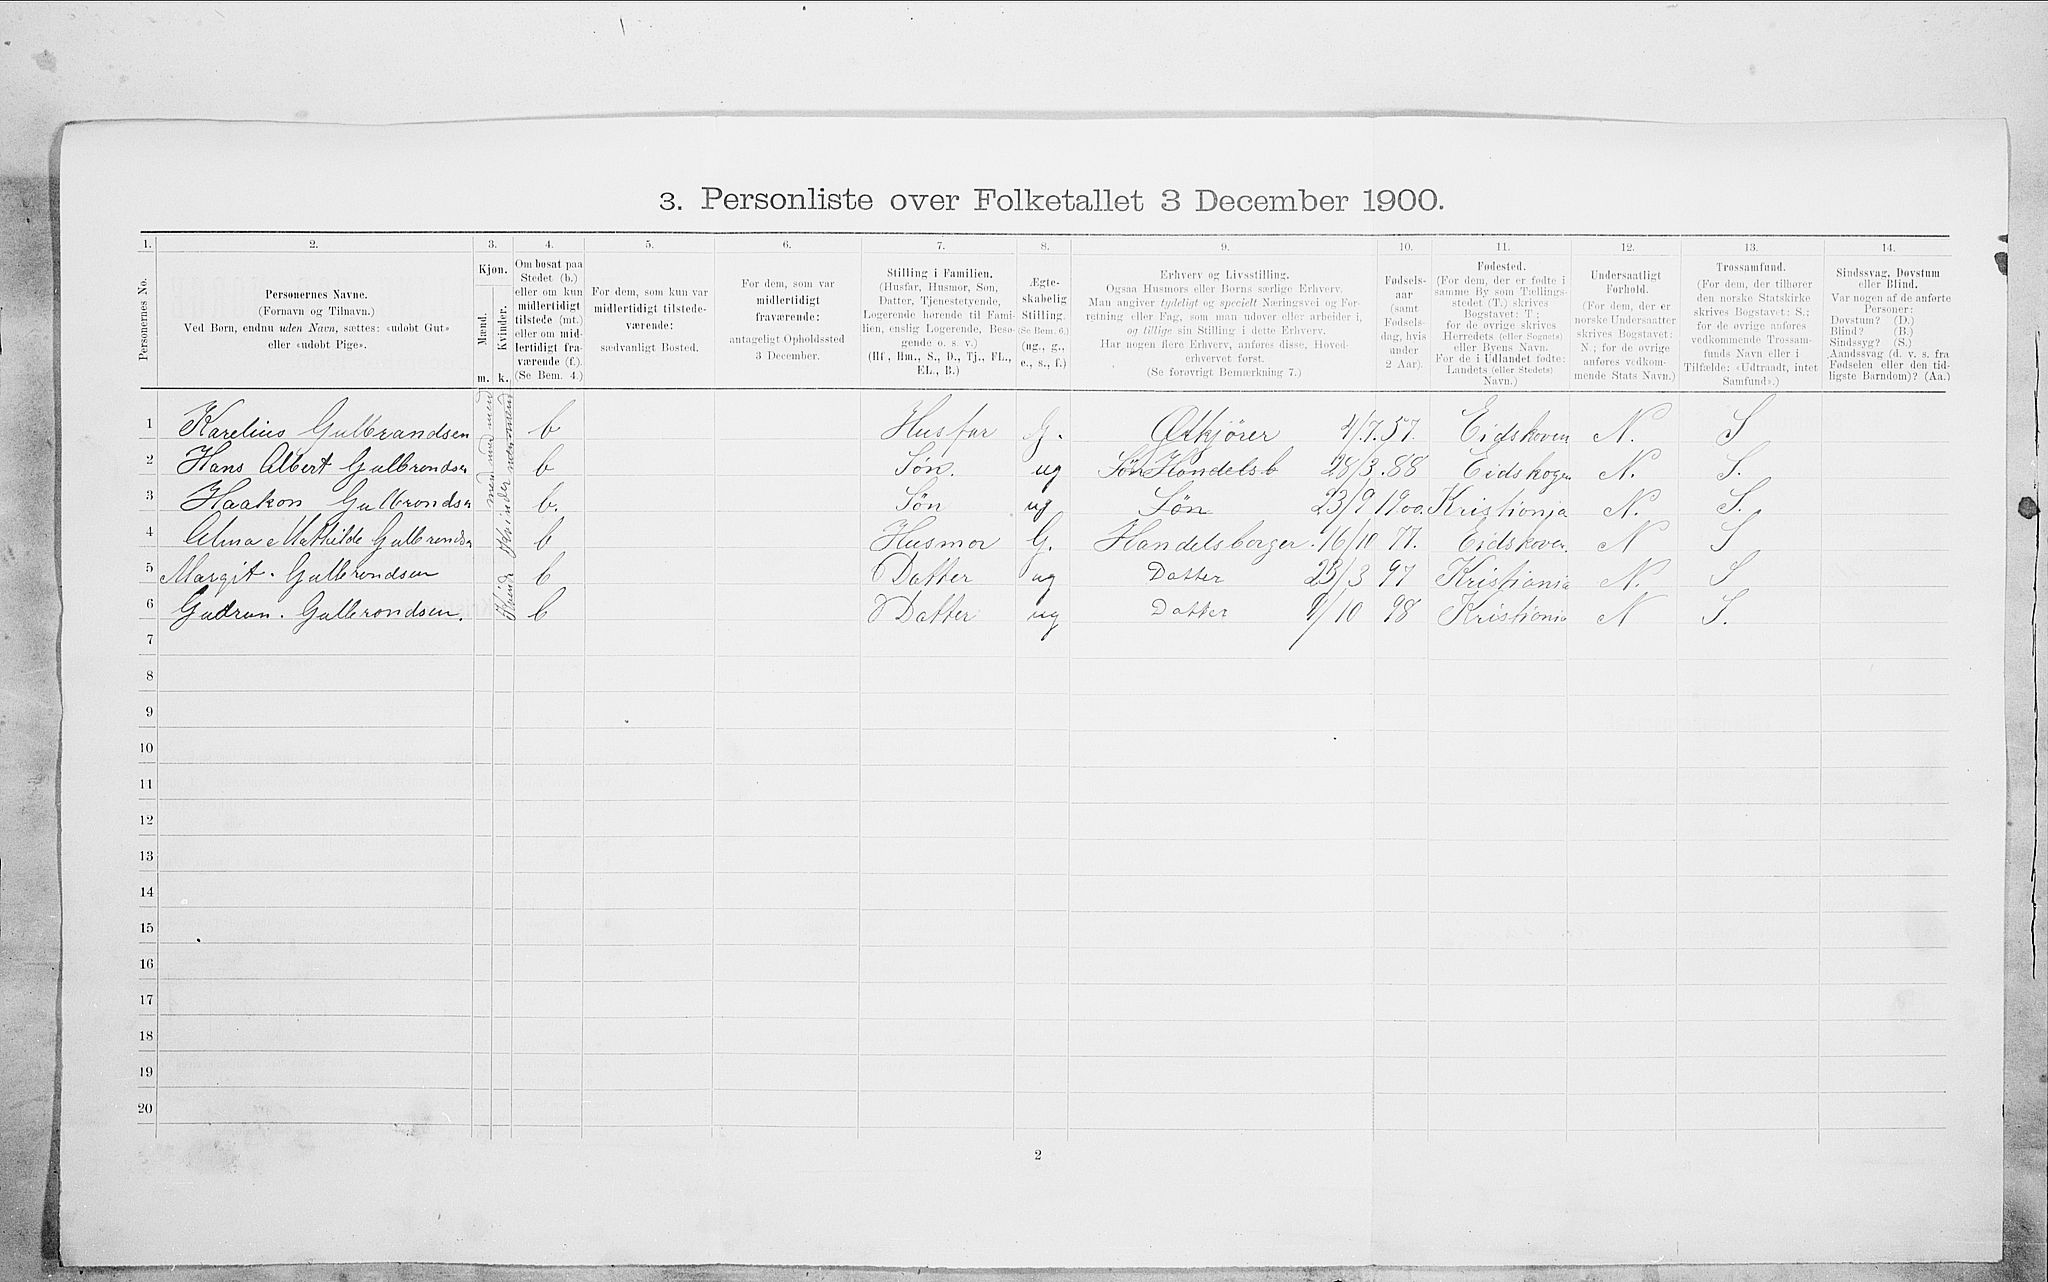 3. Personliste over Folketallet 3 December 1900.
1. 2. 3. 4. 5. 6. 7. 8. 9. 10. 11. 12. 13. 14.
Personernes No.
Personernes Navne.
(Fornavn og Tilnavn.)
Ved Børn, endnu uden Navn, sættes: «udøbt Gut»
eller «udøbt Pige».
Kjøn.
Mænd.
Kvinder.
m. k.
Om bosat paa
Stedet (b.)
eller om kun
midlertidigt
tilstede (mt.)
eller om mid-
lertidigt fra-
værende (f.).
(Se Bem. 4.)
For dem, som kun var
midlertidigt tilstede-
værende:
sædvanligt Bosted.
For dem, som var
midlertidigt
fraværende:
antageligt Opholdssted
3 December.
Stilling i Familien.
(Husfar, Husmor, Søn,
Datter, Tjenestetyende,
Logerende hørende til Fami-
lien, enslig Logerende, Besø-
gende o. s. v.)
(Hf., Hm., S., D., Tj., FL.,
EL., B.)
Ægte-
skabelig
Stilling.
(Se Bem. 6.)
(ug., g.,
e., s., f.)
Erhverv og Livsstilling.
Ogsaa Husmors eller Børns særlige Erhverv.
Man angiver tydeligt og specielt Næringsvei og For-
retning eller Fag, som man udøver eller arbeider i,
og tillige sin Stilling i dette Erhverv.
Har nogen flere Erhverv, anføres disse, Hoved-
erhvervet først.
(Se forøvrigt Bemærkning 7.)
Fødsels-
aar
(samt
Fødsels-
dag, hvis
under
2 Aar).
Fødested.
(For dem, der er fødte i
samme By som Tællings-
stedet (T.) skrives
Bogstavet: T ;
for de øvrige skrives
Herredets (eller Sognets)
eller Byens Navn.
For de i Udlandet fødte:
Landets (eller Stedets)
Navn.)
Undersaatligt
Forhold.
(For dem, der er
norske Undersaatter
skrives Bogstavet:
N.; for de øvrige
anføres vedkom-
mende Stats Navn.)
Trossamfund.
(For dem, der tilhører
den norske Statskirke
skrives Bogstavet: S.;
for de øvrige anføres
vedkommende Trossam-
funds Navn eller i
Tilfælde: «Udtraadt, intet
Samfund».)
Sindssvag, Døvstum
eller Blind.
Var nogen af de anførte
Personer:
Døvstum? (D.)
Blind? (B.)
Sindssyg? (S.)
Aandssvag (d. v. s. fra
Fødselen eller den tid-
ligste Barndom)? (Aa.)
1 Karelius Gulbrandsen b Husfar G. 4/7.57. Eidskoven N. S
2 Hans Albert Gulbrandsen b Søn. ug Søn Handelsb 28/3.88 Eidskogen N. S.
3 Haakon Gulbrandsen b. Søn ug Søn 23/9 1900 Kristionja N. S.
4 Alma Mathilde Gulbrandsen b Husmor G. Handelsborger. 16/10 77. Eidskoven N S
5 Margit. Gulbrondsen b Datter ug Datter 23/3 97 Kristiania N. S
6 Gudrun. Gulbrondsen. b Datter ug Datter 9/10 98 Kristionia N S.
7
8
9
10
11
12
13
14
15
16
17
18
19
20
2